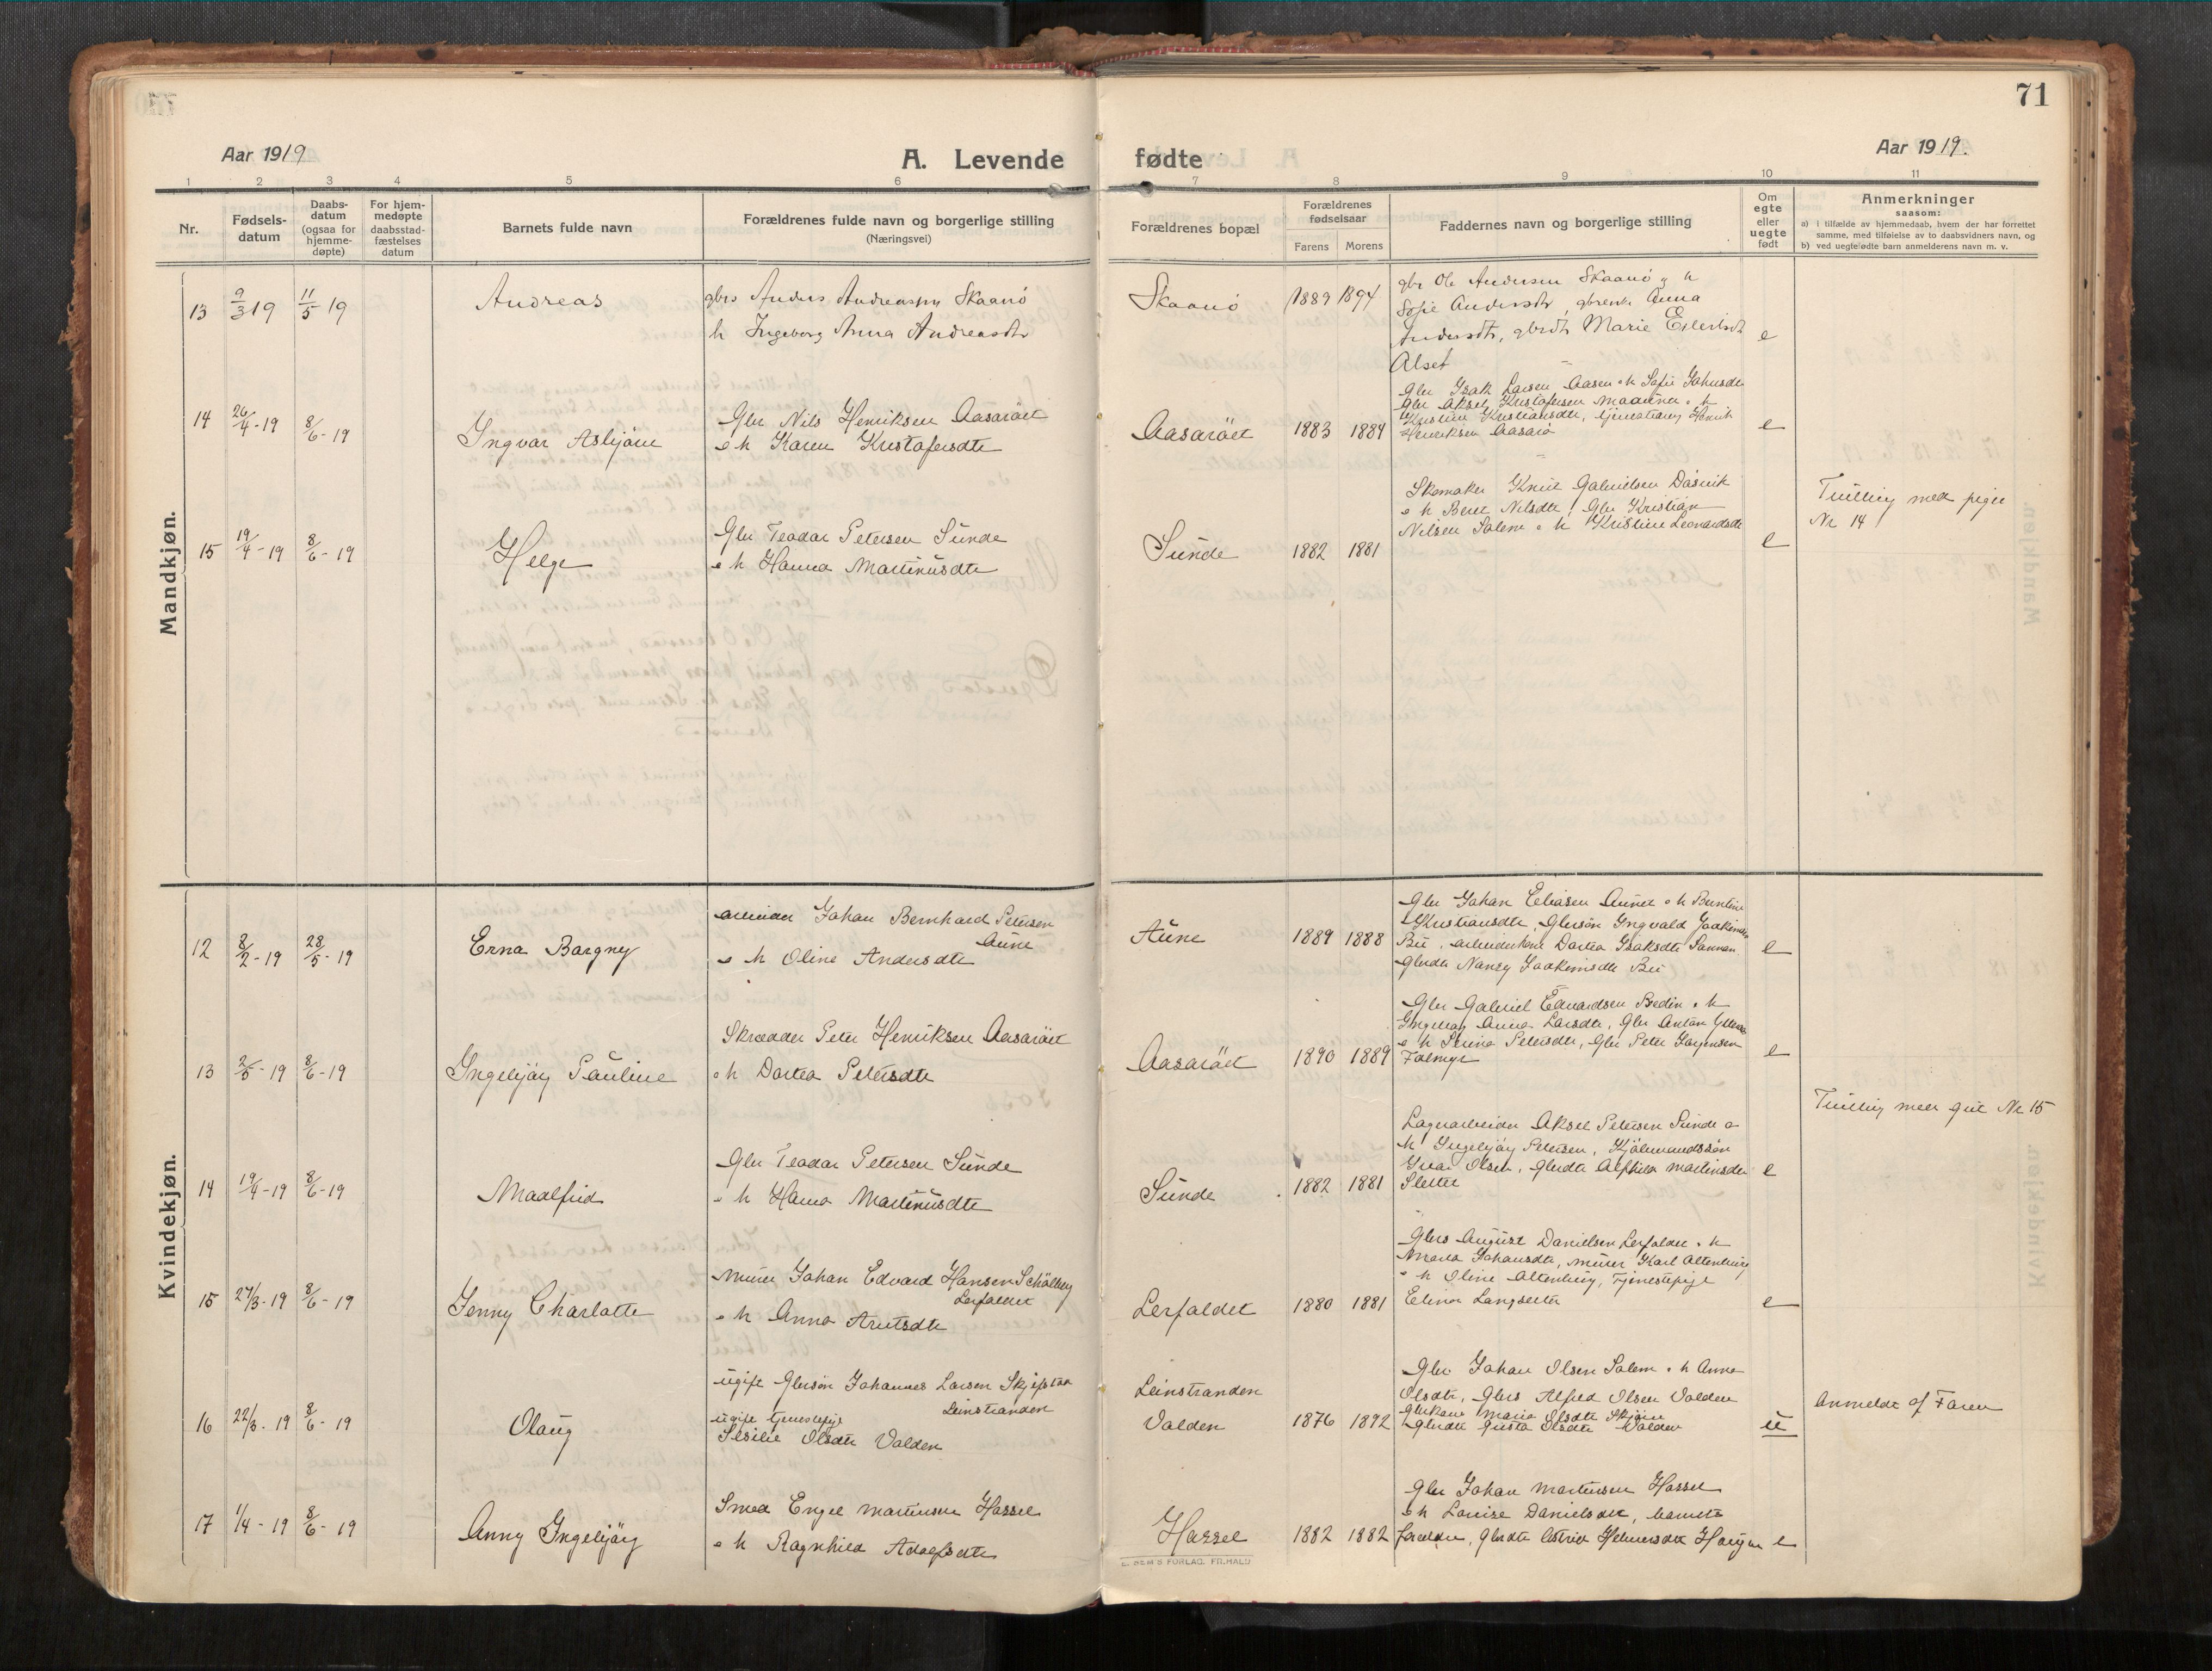 71
Aar 1919
A. Levende
fødte
Aar 1919.
1 2 3 4 5 6 7 8 9 10 11
Nr.
Fødsels-
datum
Daabs-
datum
(ogsaa for
hjemme-
døpte)
For hjem-
medøpte
daabsstad-
fæstelses
datum
Barnets fulde navn
Forældrenes fulde navn og borgerlige stilling
(Næringsvei)
Forældrenes bopæl
Forældrenes
fødselsaar
Farens
Morens
Faddernes navn og borgerlige stilling
Om
egte
eller
uegte
født
Anmerkninger
saasom:
a) i tilfælde av hjemmedaab, hvem der har forrettet
samme, med tilføielse av to daabsvidners navn, og
b) ved uegte fødte barn anmelderens navn m. v.
Mandkjøn.
13 9/3 19 11/5 19 Andreas
gbrs Anders Andreassen Skaanö
h Ingeborg Anna Andreasdtr
Skaanö 1889 1894
gbr Ole Andersen Skaanö og h
Sofie Andersdtr, Anna
Andersdtr, gbrdtr Marie
Alset
e
14 26/4-19 8/6-19 Ingvar Asbjörn
Gbr Nils Henriksen Aasaröet
o h Karen Kristofersdtr
Aasaröet 1883 1884
Gbr Isak Larsen Aasen o h Sofie Johnsdtr
Gbr Aksel Kristofersen o h
Kristine Kristiansdtr, Henrik
Henriksen Aasarö
e
15 19/4-19 8/6-19 Helge
Gbr Teodor Petersen Sunde
o h Hanna Martinusdtr
Sunde 1882 1881
Skomaker Knut Gabrielsen Dasvik
o h Beret Nilsdtr, Gbr Kristian
Nilsen Salem o h Kristine Leonardsdtr
e
Tvilling med pige
Nr 14
Kvindekjøn.
12 8/2-19 28/5-19 Erna Borgny
arbeider Johan Bernhard Petersen
Aune
o h Oline Andersdtr
Aune 1889 1888
Gbr Johan Eliasen Aunet o h Berntine
Kristiansdtr, Gbrsön Ingvald Joakimsen
Bü, arbeiderkone Dortea Isaksdtr
Gbrdtr Nancy Joakimsdtr Bü
e
13 2/5-19 8/6-19 Ingebjörg Pauline
Skrædder Peter Henriksen Aasaröet
o h Dortea Petersdtr
Aasaröet 1890 1889
Gbr Gabriel Edvardsen Bedin o h
Ingeborg Anna Larsdtr, Gbr Anton
o h Petersdtr, Gbr Peter Jørgensen
e
14 19/4-19 8/6-19 Maalfrid
Gbr Teodor Petersen Sunde
o h Hanna Martinusdtr
Sunde 1882 1881
Lagerarbeider Aksel Petersen Sunde o
h Ingebjörg Petersen,
Ivar Olsen, Gbrdtr Alfhild Martinsdtr
e
Tvilling med gut Nr 15
15 27/3-19 8/6-19 Jenny Charlotte
murer Johan Edvard Hansen Schölberg
Lerfaldet
o h Anna Arntsdtr
Lerfaldet 1880 1881
Gbrs August Danielsen Lerfaldet o h
Maria Johansdtr, murer Karl Altenburg
o h Oline Altenburg, Tjenestepige
Elina Langseter
e
16 22/3-19 8/6-19 Olaug
ugift Gbrsön Johannes Larsen Skjefstad
Leinstranden
ugift tjenestepige
Sesilie Olsdtr Valden
Leinstranden
Valden 1876 1892
Gbr Johan Olsen Salem o h Anna
Olsdtr, Gbrs Alfred Olsen Valden
Gbrkone Maria Olsdtr
Gbrdtr Gusta Olsdtr Valden
ü
Anmeldt af Faren
17 1/4-19 8/6-19 Anny Ingebjörg
Smed Engel Martinsen Hassel
o h Ragnhild Adolfsdtr
Hassel 1882 1882
Gbr Johan Martinsen Hassel
o h Lovise Danielsdtr, barnets
forældre, Gbrdtr Astrid Helmersdtr
e
E. SEM'S FORLAG, FR.HALD